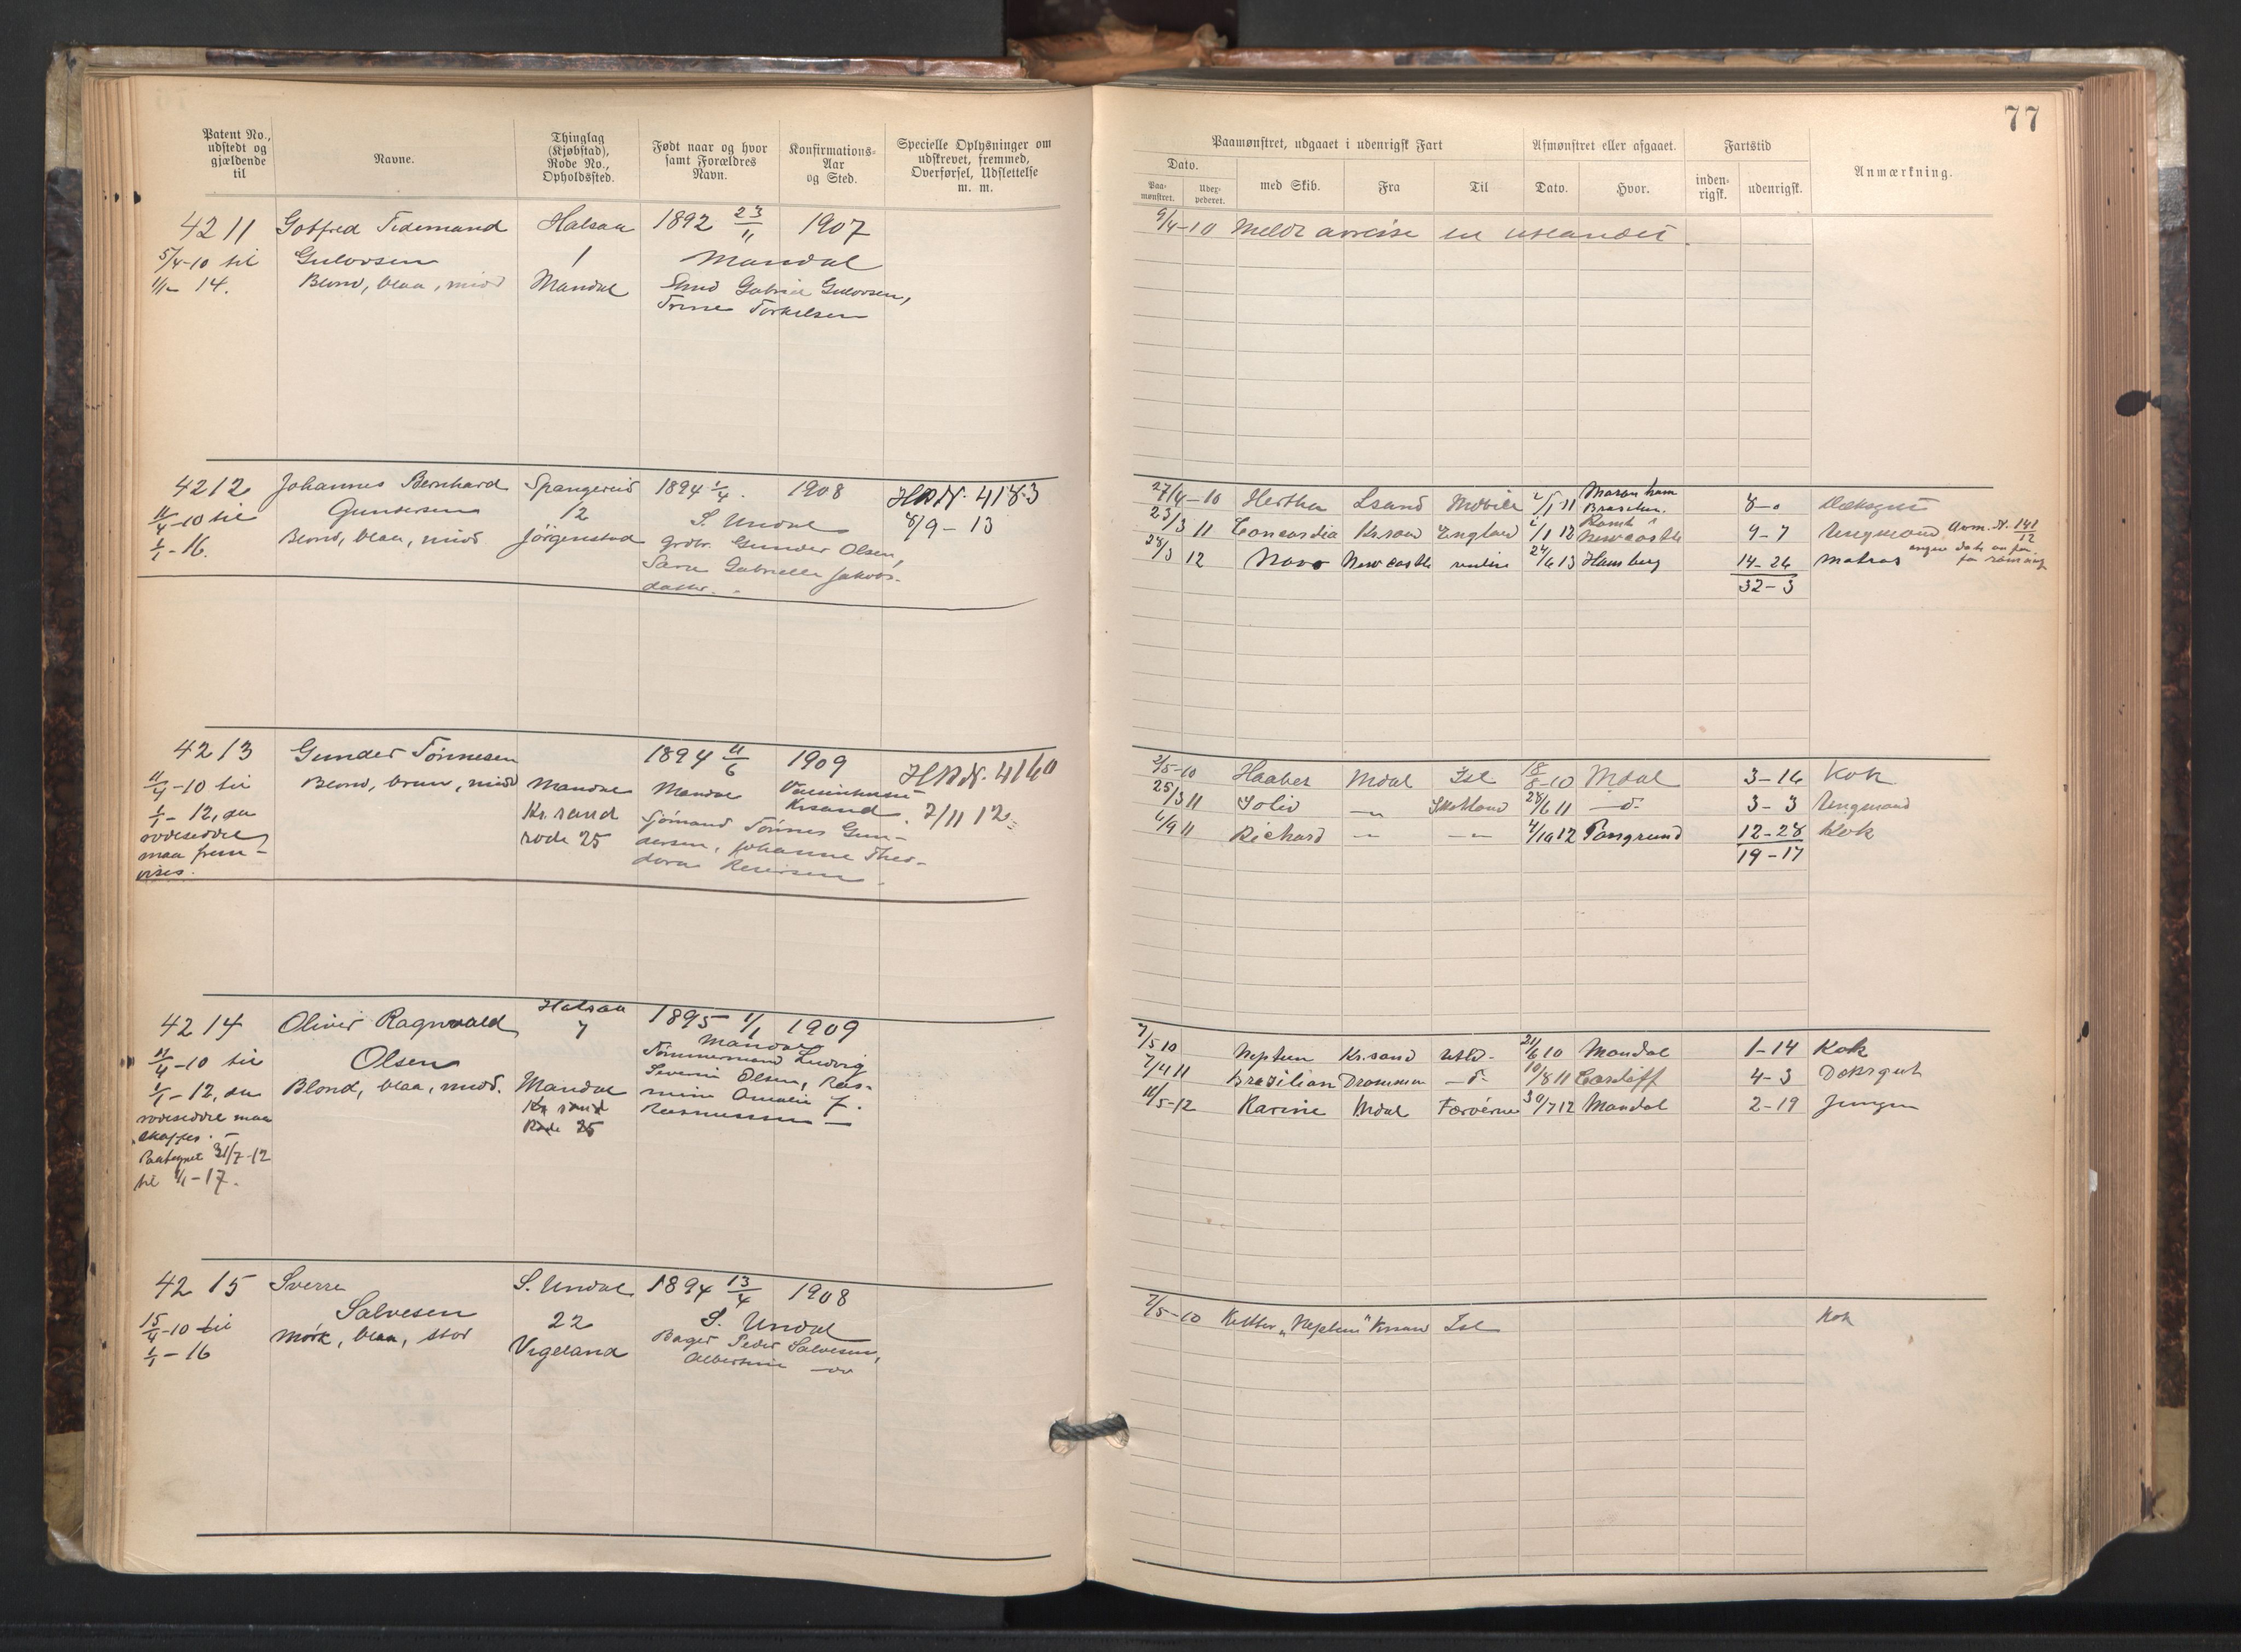 77
Patent No., udstedt og gjældende til
Navne.
Thinglag (Kjøbstad), Rode No., Opholdssted.
Født naar og hvor samt Forældres Navn.
Konfirmations-Aar og Sted.
Specielle Oplysninger om udskrevet, fremmed, Overførsel, Udslettelse m. m.
Paamønstret, udgaaet i udenrigsk Fart
Afmønstret eller afgaaet.
Fartstid
Anmærkning.
Dato.
Paa-mønstret.
med Skib.
Fra
Til
Dato.
Hvor.
inden-rigsk.
udenrigsk.
4211 Gotfred Tidemand Halsaa 1892 23/11 1907
5/4-10 til Gulovsen 1 Mandal
1/1- 14. Blond, blaa, midd Mandal Gabriel Gulovsen,
Trine Torkelsen
9/4-10 Meldt avreise til utlandet.
4212 Johannes Bernhard Spangereid 1894 1/4. 1908 4183
11/4-10 til Gundersen 12 S. Undal 8/9-13
1/1-16. Blond, blaa, midd Jörgenstad Grdbr. Gunder Olsen,
Sara Gabrielle Jakobs-
datter.
27/4-10 Hertha Mobile 2/1 11 8-0 Dæksgut
Brasilien.
23/3 11 Concordia Kr.sand England 1/1 12 Newcastle 9-7 Anm. N. 141/12
28/3 12 Newcastle 24/6 13 Hamburg 14-26 matros
32-3
4213 Gunder Tönnesen 1894 11/6 1909 4160
11/4-10 til Blond, brun, midd Mandal Mandal
1/1-12, da Kr.sand Krsand 7/11 12
rodeseddel rode 25 Sjömand Tönnes Gun-
maa frem- dersen, Johanne Theo-
vises. dora
2/5-10 Haabet Mdal Isl 18/8-10 Mdal 3-16 Kok
25/3 11 Solid -„- Skotland 28/6 11 -d- 3-3 Ungmand
6/9 11 Richard -„- -„- 4/10 12 Porsgrund 12-28 Kok
19-17
4214 Oliver Ragnvald Halsaa 1895 1/1 1909
7
11/4-10 til Olsen Mandal
Tömmermand Ludvig
1/1-12, da Blond, blaa, midd. Mandal Severin Olsen, Ras-
rodeseddel maa Kr sand mine Amalie f.
skaffes. Rode 25 Rasmussen
Paategnet 31/7-12
til 1/1-17.
7/5 10 Neptun Kr.sand Utld- 21/6 10 Mandal 1-14 Kok
7/4 11 Brazilian Drammen -d- 10/8 11 Cardiff 4-3 Dæksgut
11/5-12 Karine Mdal Færöerne 30/7 12 Mandal 2-19 Jungm
4215 Sverre S. Undal 1894 13/4 1908
15/4-10 til Salvesen 22 S. Undal
1/1-16 Mörk, blaa, stor Vigeland Bager Peder Salvesen,
Albertine
7/5-10 „Neptun" Krsand Isl Kok